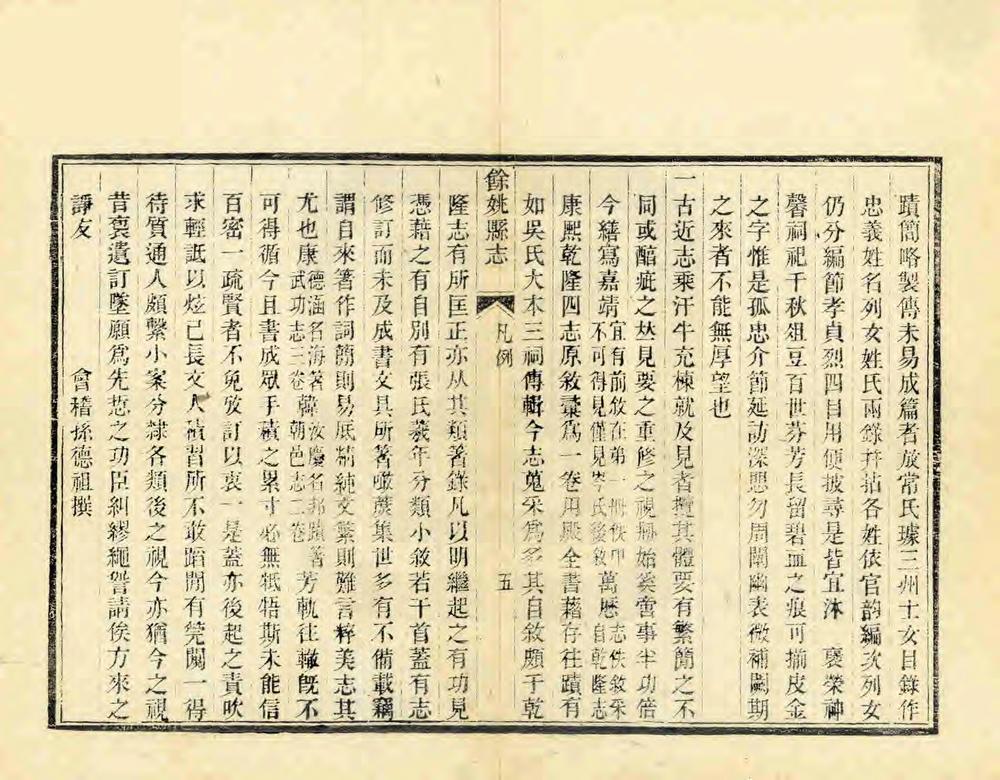 蹟簡略製傳未易成篇者放常氏璩三州士女目錄作
忠義姓名列女姓氏兩錄幷㧞各姓依官韵編次列女
仍分編節孝貞烈四目用便披尋是皆宜沐 褒榮神
馨祠祀千秋俎豆百世芬芳長留碧血之痕可揃皮金
之字惟是孤忠介節延訪深悬勿周闡幽表微補闕期
之來者不能無厚望也
一古近志乘汗牛充棟就及見者擅其體要有繁簡之不
同或醅疵之𠀤見要之重修之視剏始奚啻事半功倍
今繕寫嘉靖宜有前敘在弟一冊佚甲不可得見僅見岑氏後敘萬厯志佚敘采自乾隆志
康熙乾隆四志原敘彚爲一卷用殿全書藉存往蹟有
如吳氏大本三祠傳輯今志蒐采爲多其自敘頗于乾
餘姚縣志 凡例 五
隆志有所匡正亦从其類著錄凡以明繼起之有功見
憑藉之有自別有張氏羲年分類小敘若干首蓋有志
修訂而未及成書文具所著噉蔗集世多有不備載竊
謂自來著作詞簡則易厎精純文繁則難言粹美志其
尤也康德涵名海著武功志三卷韓汝慶名邦蹟著朝邑志二卷芳軌往轍旣不
可得循今且書成眾手積之累寸必無牴牾斯未能信
百密一疏賢者不免攷訂以衷一是蓋亦後起之責吹
求輕詆以炫己長文人積習所不敢蹈閒有筦闚一得
待質通人頗繫小案分隷各類後之視今亦猶今之視
昔裒遺訂墜願爲先悊之功臣糾繆繩諐請俟方來之
諍友 會稽孫德祖撰